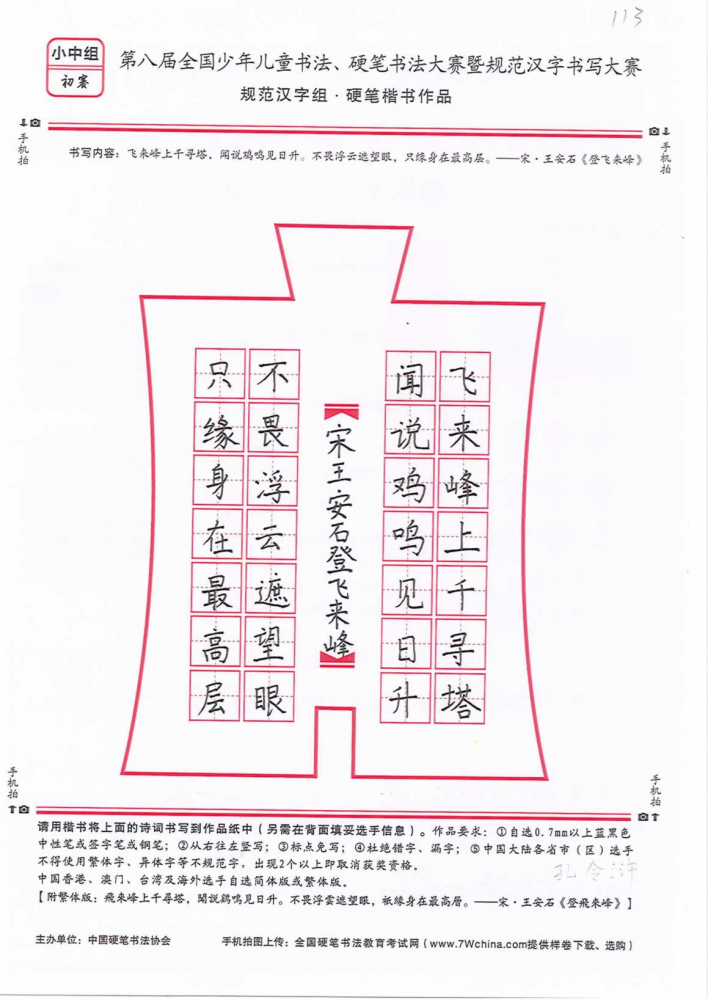 113
小中组
初赛
第八届全国少年儿童书法、硬笔书法大赛暨规范汉字书写大赛
规范汉字组·硬笔楷书作品
手机拍
手机拍
书写内容：飞来峰上千寻塔，闻说鸡鸣见日升。不畏浮云遮望眼，只缘身在最高层。——宋·王安石《登飞来峰》
飞来峰上千寻塔
闻说鸡鸣见日升
宋王安石登飞来峰
不畏浮云遮望眼
只缘身在最高层
手机拍
手机拍
请用楷书将上面的诗词书写到作品纸中（另需在背面填妥选手信息）。作品要求：①自选0.7mm以上蓝黑色
中性笔或签字笔或钢笔；②从右往左竖写；③标点免写；④杜绝错字、漏字；⑤中国大陆各省市（区）选手
不得使用繁体字、异体字等不规范字，出现2个以上即取消获奖资格。
孔令浒
中国香港、澳门、台湾及海外选手自选简体版或繁体版。
【附繁体版：飛來峰上千尋塔，聞說鷄鳴見日升。不畏浮雲遮望眼，祇緣身在最高層。——宋·王安石《登飛來峰》】
主办单位：中国硬笔书法协会
手机拍图上传：全国硬笔书法教育考试网（www.7Wchina.com提供样卷下载、选购）